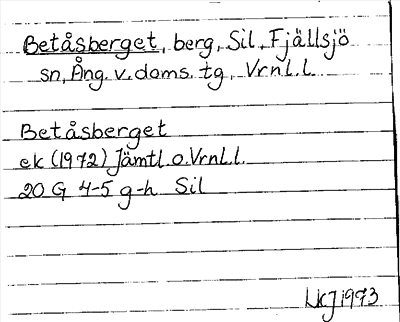 Betåsberget, berg, Sil, Fjällsjö
sn, Ång. v. doms. tg, Vrnl. l.
Betåsberget
ek (1972) Jämtl. o. Vrnl. l.
20 G 4-5 g-h Sil
LkJ 1973